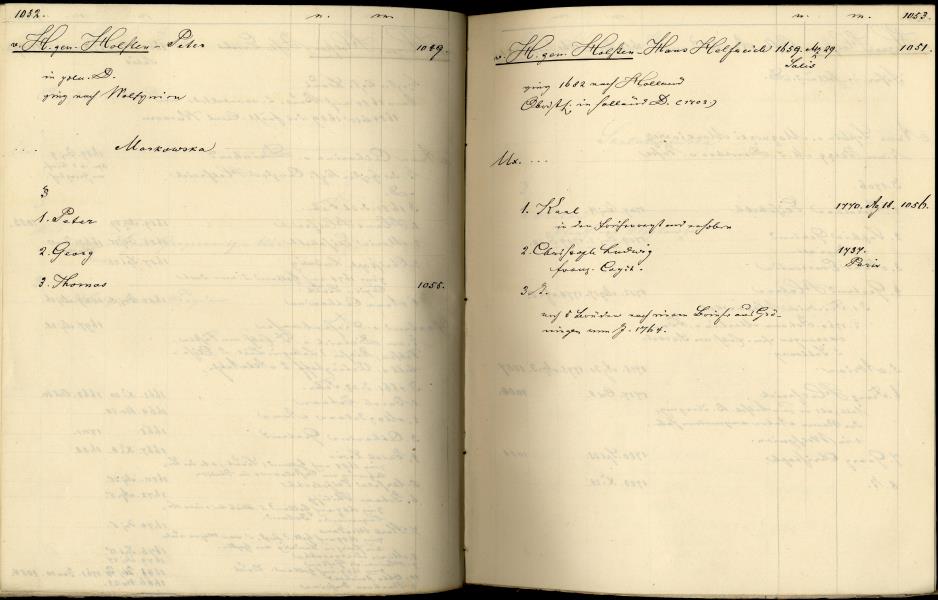 1052. n. m.
v. H. gen. Holsten - Peter 1049.
in poln. D.
ging nach Wolhynien
.... Moskowska
3
1. Peter
2. Georg
3. Thomas 1055.
n. m. 1053.
v. H. gen. Holsten - Hans Helfreich 1659. Ag 29. 1051.
Salis
ging 1682 nach Holland
Obristl. in holländ D. (1703.)
Ux. ...
1. Karl 1770. Ag 18. 1056.
in den Freiherrnstand erhoben
2. Christoph Ludwig 1737.
franz. Capit. Paris
3. N.
noch 5 Brüder nach einem Briefe aus Grö-
ningen vom J. 1764.